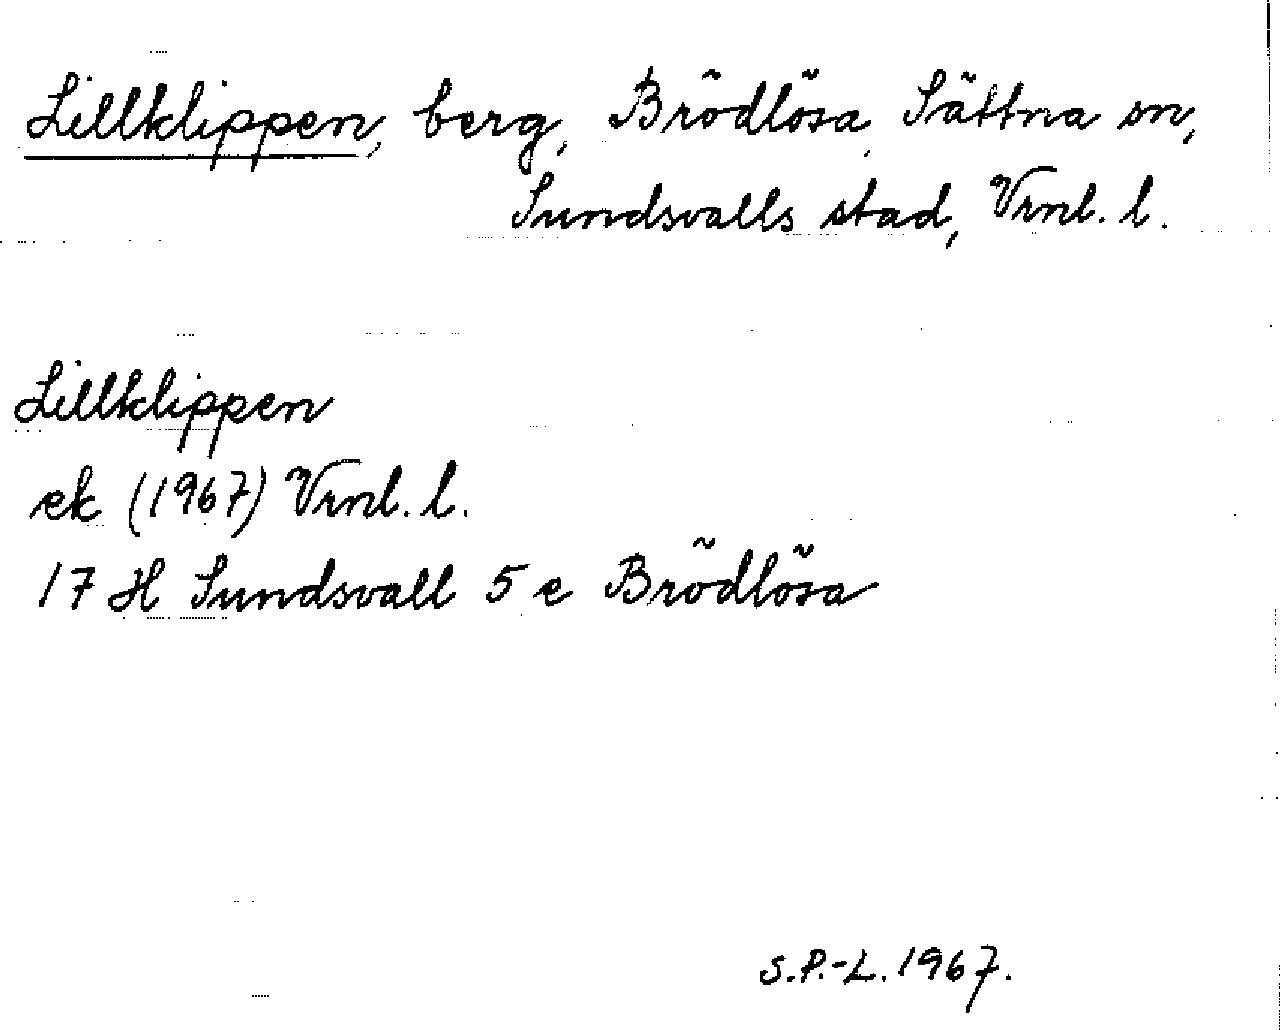 Lillklippen, berg, Brödlösa, Sättna sn,
Sundsvalls stad, Vrnl. l.
Lillklippen
ek (1967) Vrnl. l.
17 H Sundsvall 5 e Brödlösa
S.P.-L. 1967.